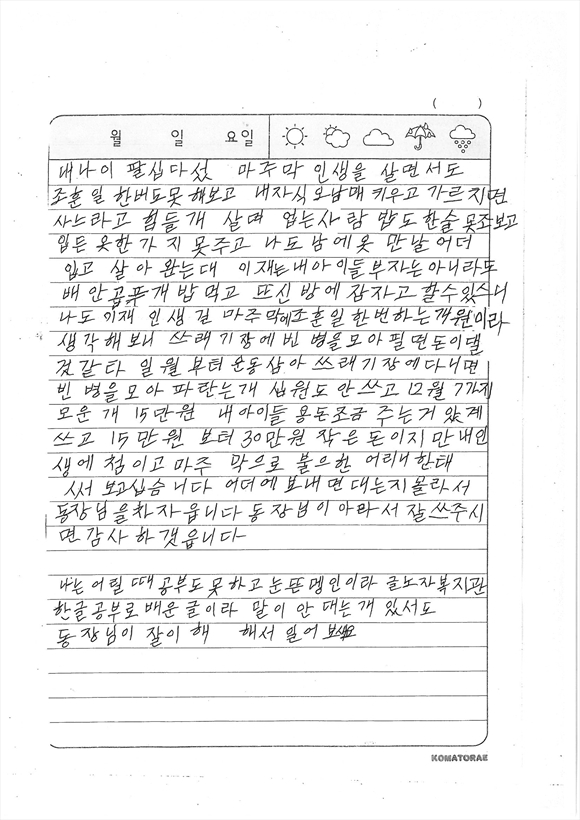 ( )
월 일 요일
내나이 팔십다섯 마주막 인생을 살면서도
조훈일 한버도못 해보고 내자식 오남매 키우고 가르치면
사느라고 힘들개 살며 업는사람 밥도한술 못조보고
입든 옷한가지 못주고 나도남에옷 만날어더
입고 살아 왔는대 이재는내아이들부자는아니라도
배안곱푸개밥먹고 뜨신방에 잠자고 할수있스니
나도이재 인생길 마주막에조훈일한번하는개원이라
생각해보니 쓰래기장에빈병을모아필면돈이댈
것갇타 일월부터운동삼아 쓰래기장에다니면
빈병을모아파란는개 십원도안쓰고12월 7가지
모운개 15만원 내아이들 용돈조금 주는거 있개
쓰고 15만원 보터30만원 작은돈이지만내인
생에 첨이고마주 막으로 불으한 어리내한태
써 보고십습니다 어더에보내면대는지몰라서
동장님을차자읍니다동장님이아라서잘쓰주시
면감사하갯읍니다
나는어릴때공부도못하고눈뜬멩인이라 글노자복지관
한글공부로배운글이라 말이안대는개있서도
동장님이잘이해 해서 일어보세요
KOMATORAE